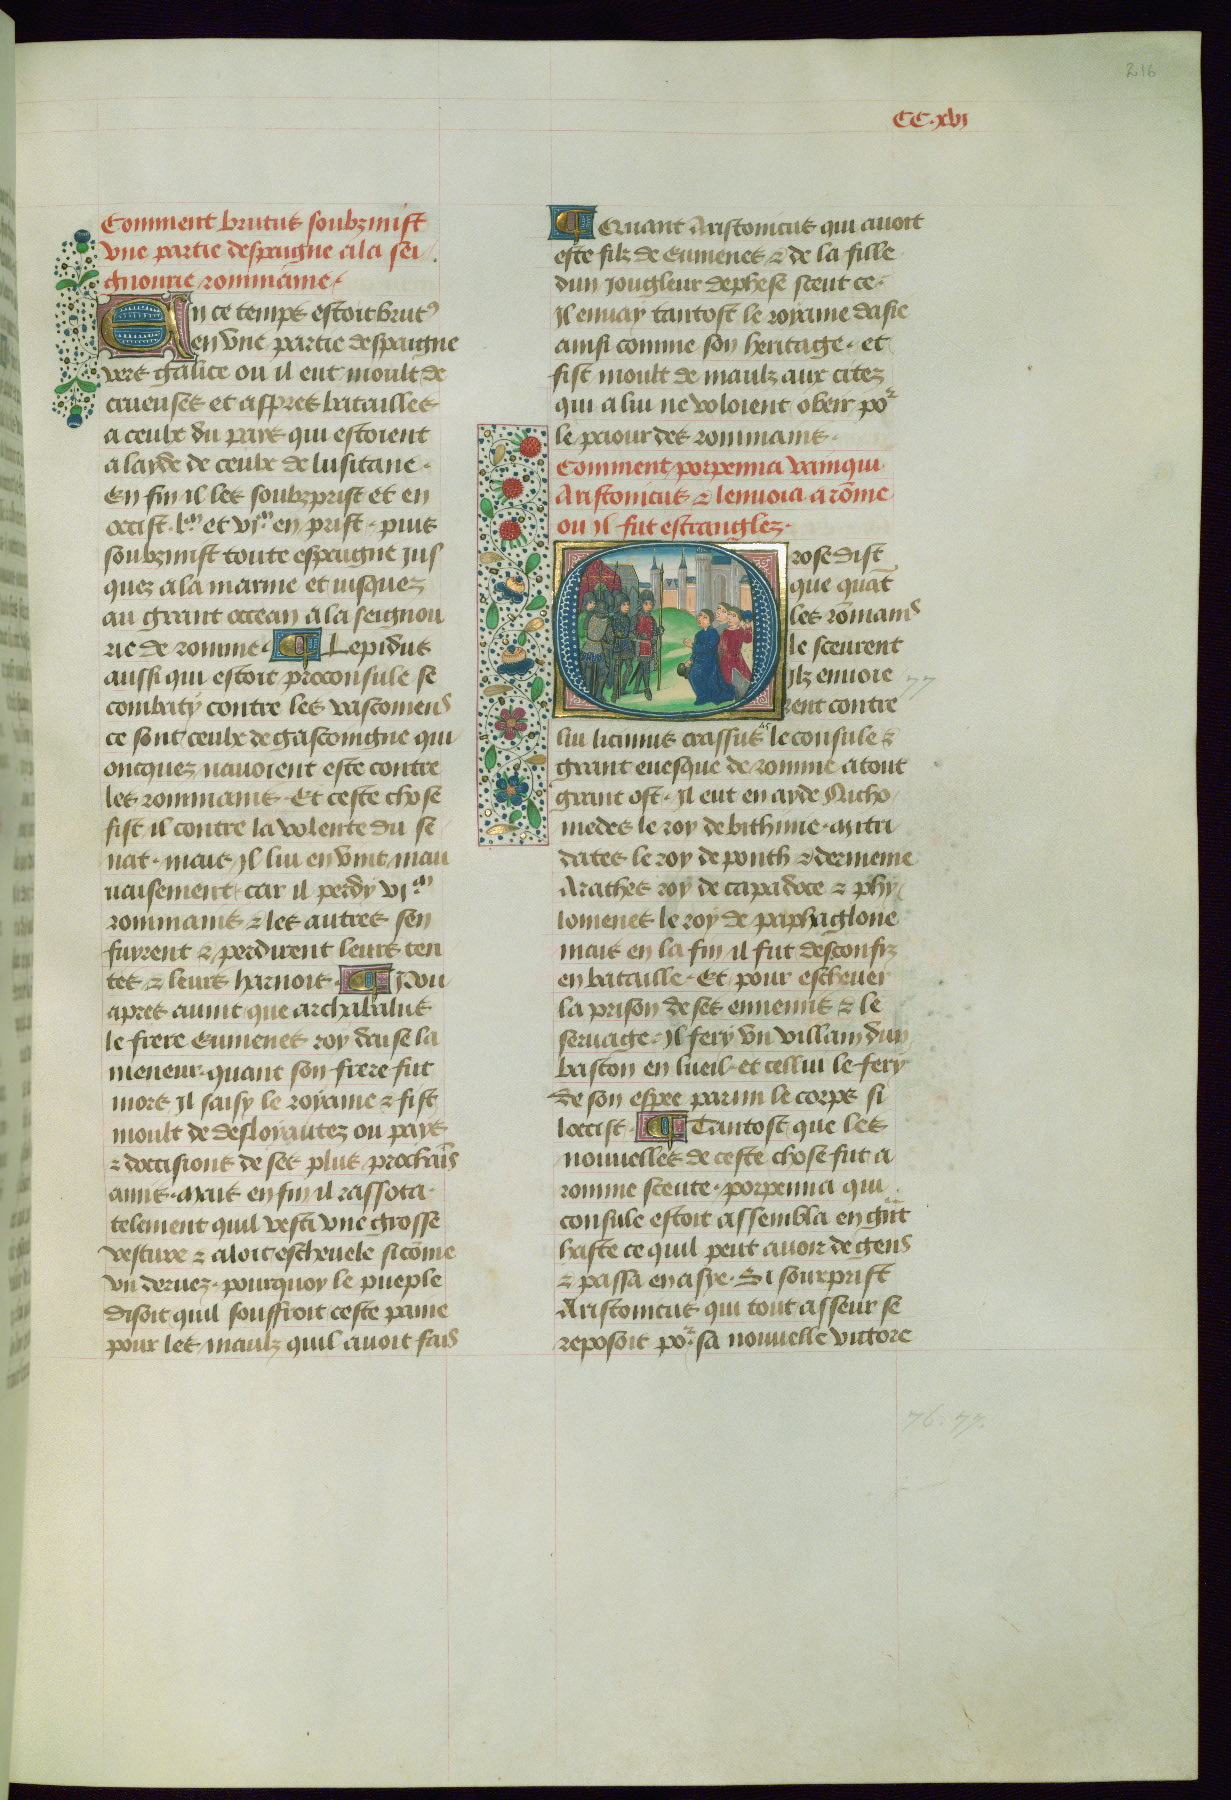 216
CC.xvi
Comment brutus soubzmist
vne partie despaigne a la sei
gnourie rommaine.
En ce temps estoit brut⁹
en vne partie despaigne
vers galice ou il eut moult de
crueuses et aspres batailles
a ceulx du pays qui estoient
a layde de ceulx de lusitane.
En fin il les soubzprist et en
occist .l.ᵐ et vi.ᵐ en prist. puis
soubzmist toute espaigne jus
ques a la marine et iusques
au grant occean a la seignou
rie de romme. Lepidus
aussi qui estoit proconsule se
combaty contre les vascoiens
ce sont ceulx de gascoingne qui
oncquez nauoient este contre
les rommains. Et ceste chose
fist il contre la volente du se
nat. mais jl lui en vint mau
uaisement. car il perdy vi.ᵐ
rommains & les autres sen
fuyrent & perdirent leurs ten
tes & leurs harnois. Pou
apres auint que archabalus
le frere Eumenes roy dause la
meneur. quant son frere fut
mort jl saisy le royaume & fist
moult de desloyautez ou pays
& doccisions de ses plus prochaīs
amis. Mais en fin il rassota
telement quil vesti vne grosse
vesture & aloit escheuele si cōme
vn deruez. pourquoy le pueple
disoit quil souffroit ceste paine
pour les maulz quil auoit fais
Quant Aristonicus qui auoit
este filz de Eumenes & de la fille
dun jougleur dephese sceut ce.
Jl enuay tantost le royaume dasie
ainsi comme son heritage. et
fist moult de maulz aux citez
qui a lui ne voloient obeir poʳ
le paiour des rommains.
Comment porpenna vainqui
Aristonicus & lenuoia a rōme
ou jl fut estranglez.
Orose dist
que quāt
les rōmains
le sceurent
jlz enuoie
rent contre
77
lui licinius crassus le consule &
grant euesque de romme a tout
grant ost. Jl eut en ayde Nicho
medes le roy de bithinie. mitri
dates le roy de ponth & dermenie
Arathes roy de capadoce & phy
lomenes le roy de paphaglone
mais en la fin il fut desconfiz
en bataille. Et pour escheuer
la prison de ses ennemis & le
seruage. Jl fery vn villain dun
baston en lueil. et cellui le fery
de son espee parmi le corps si
loccist. Tantost que les
nouuelles de ceste chose fut a
romme sceute. porpenna qui
consule estoit assembla en grāt
haste ce quil peut auoir de gens
& passa en asye. Si sourprist
Aristonicus qui tout asseur se
reposoit poʳ sa nouuelle victore
76. 77.